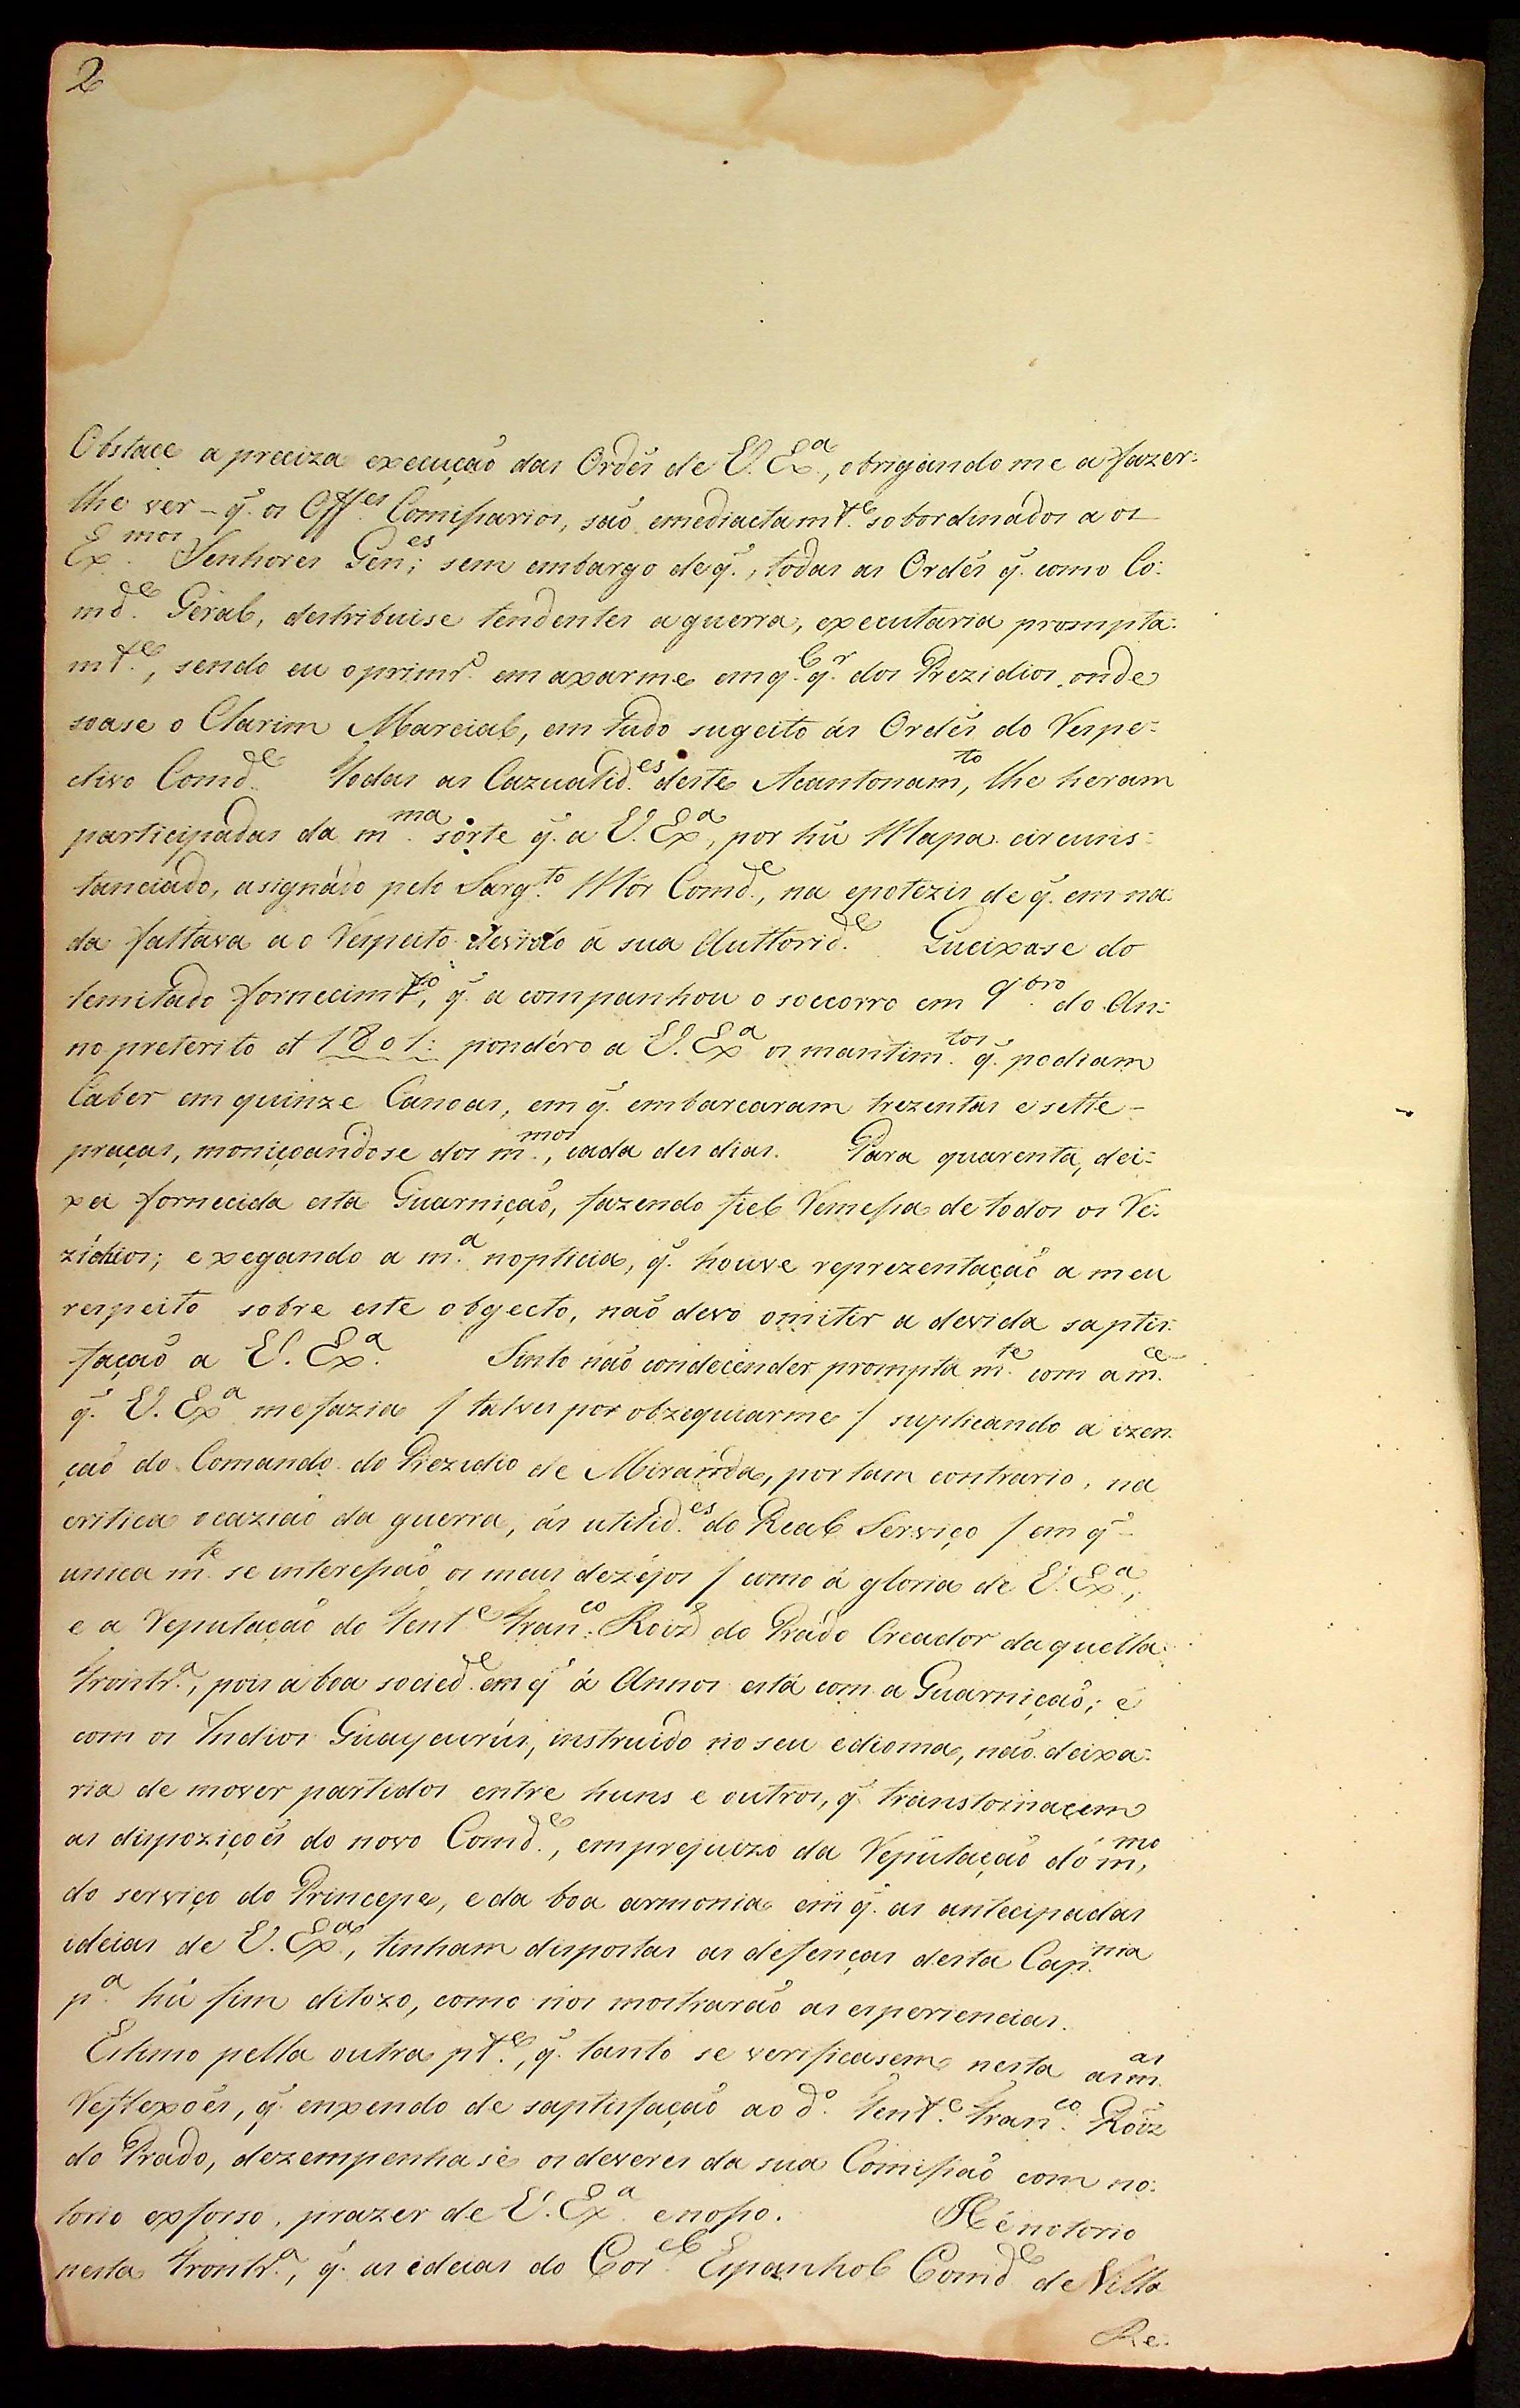 2
Obstace a preciza execução das Ordẽs de V. Ex.ª, obrigando me a fazer:
lhe ver – q̃. os Off.es Comisarios, saõ emediactam.te sobordinados a os
Ex.mos Senhores Gen.es; sem embargo de q̃., todas as Ordẽs q̃. como Co:
md.e Geral, destribuise tendentes a guerra, executaria prompta:
m.te, sendo eu o primr.o em axarme em q.l q.r dos Prezidios, onde
soase o Clarim Marcial, em tudo sugeito ás Ordẽs do Respe:
ctivo Comd.e Todas as Cazualid.es deste Acantonam.to, lhe heram
participadas da m.ma sorte q̃. a V. Ex.ª, por hũ Mapa circuns:
tanciado, asignádo pelo Sarg.to Mór Comd.e, na epotezis de q̃. em na:
da faltava a o Respeito devido á sua Auttorid.e Queixase do
lemitado fornecim.to, q̃. a companhou o soccorro em 9.bro do An:
no preterito d 1801: pondéro a V. Ex.ª os mantim.tos q̃. podiam
Caber em quinze Canoas, em q̃. embarcaram trezentas e sette –
praças, moniçoandose dos m.mos, cada des dias. Para quarenta, dei:
xei fornecida esta Guarniçaõ, fazendo fiel Remesa de todos os Re:
zídios; e xegando a m.ª nopticia, q̃. houve reprezentaçaõ a meu
respeito sobre este obgecto, naõ devo omitir a devida saptis:
façaõ a V. Ex.ª Sinto naõ condecender prompta m.te com a m.ce
q̃. V. Ex.ª me fazia / talves por obzequiarme / suplicando a izen:
çaõ do Comando do Prezidio de Miranda, por tam contrario, na
critica ocaziaõ da guerra, ás utilid.es do Real Serviço / em q̃ –
unica m.te se interesaõ os meus dezéjos / como á gloria de V. Ex.ª;
e a Reputaçaõ do Tent.e Fran.co Roiz do Prádo Creador daquella
Frontr.ª, pois a boa socied.e em q̃ á Annos está com a Guarniçaõ; e
com os Indios Guaycurús, instruido no seu edioma, naõ deixa:
ria de mover partidos entre huns e outros, q̃ transtornacem
as dispoziçoẽs do novo Comd.e, em prejuizo da Reputaçaõ do m.mo,
do serviço do Principe, e da boa armonia em q̃. as antecipadas
ideias de V. Ex.ª, tinham dispostas as defenças desta Cap.nia
p.ª hũ fim ditozo, como nos mostraraõ as esperiencias.
Estimo pella outra p.te, q̃. tanto se verificasem nesta as m.as
Reflexoẽs, q̃. enxendo de saptisfaçaõ ao d.o Tent.e Fran.co Roiz
do Prado, dezempenhase os deveres da sua Comisaõ com no:
torio exforso, prazer de V. Ex.ª e noso. Hé notorio
nesta Frontr.ª, q̃. as ideias do Cor.el Espanhol Comd.e de Villa
Re: